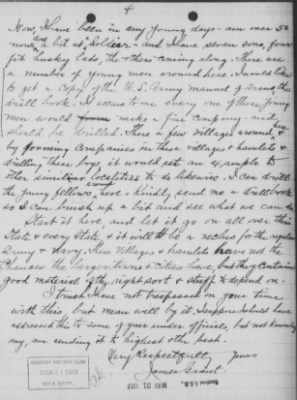 4
Now, I have been in my young days - am over 50
now - a bit of soldier - and I have seven sons, four
fit husky lads the others coming along. There are
a number of young men around here. I would like
to get a copy of the U.S. Army manual of arms, the
drill book. It seems to me every one of these young
men would make a fine company - and
should be drilled. There a few villages around,
by forming companies in these villages & hamlets &
drilling these boys it would set an example to
other similar localities to do likewise. I can drill
the young fellows here. Kindly send me a drill book
so I can brush up a bit and see what we can do
Start it here, and let it go on all over this
State & every State, & it will be a nucleus for the regular
Army & Navy. These villages & hamlets have not the
Chances the larger towns & cities have, but they contain
good material of the right sort & stuff to depend on.
I trust I have not trespassed on your time
with this, but mean well by it. I suppose I should have
addressed this to some of your under officials, but not knowing
any, am sending it to highest other best.
Very Respectfully Yours
James Grant